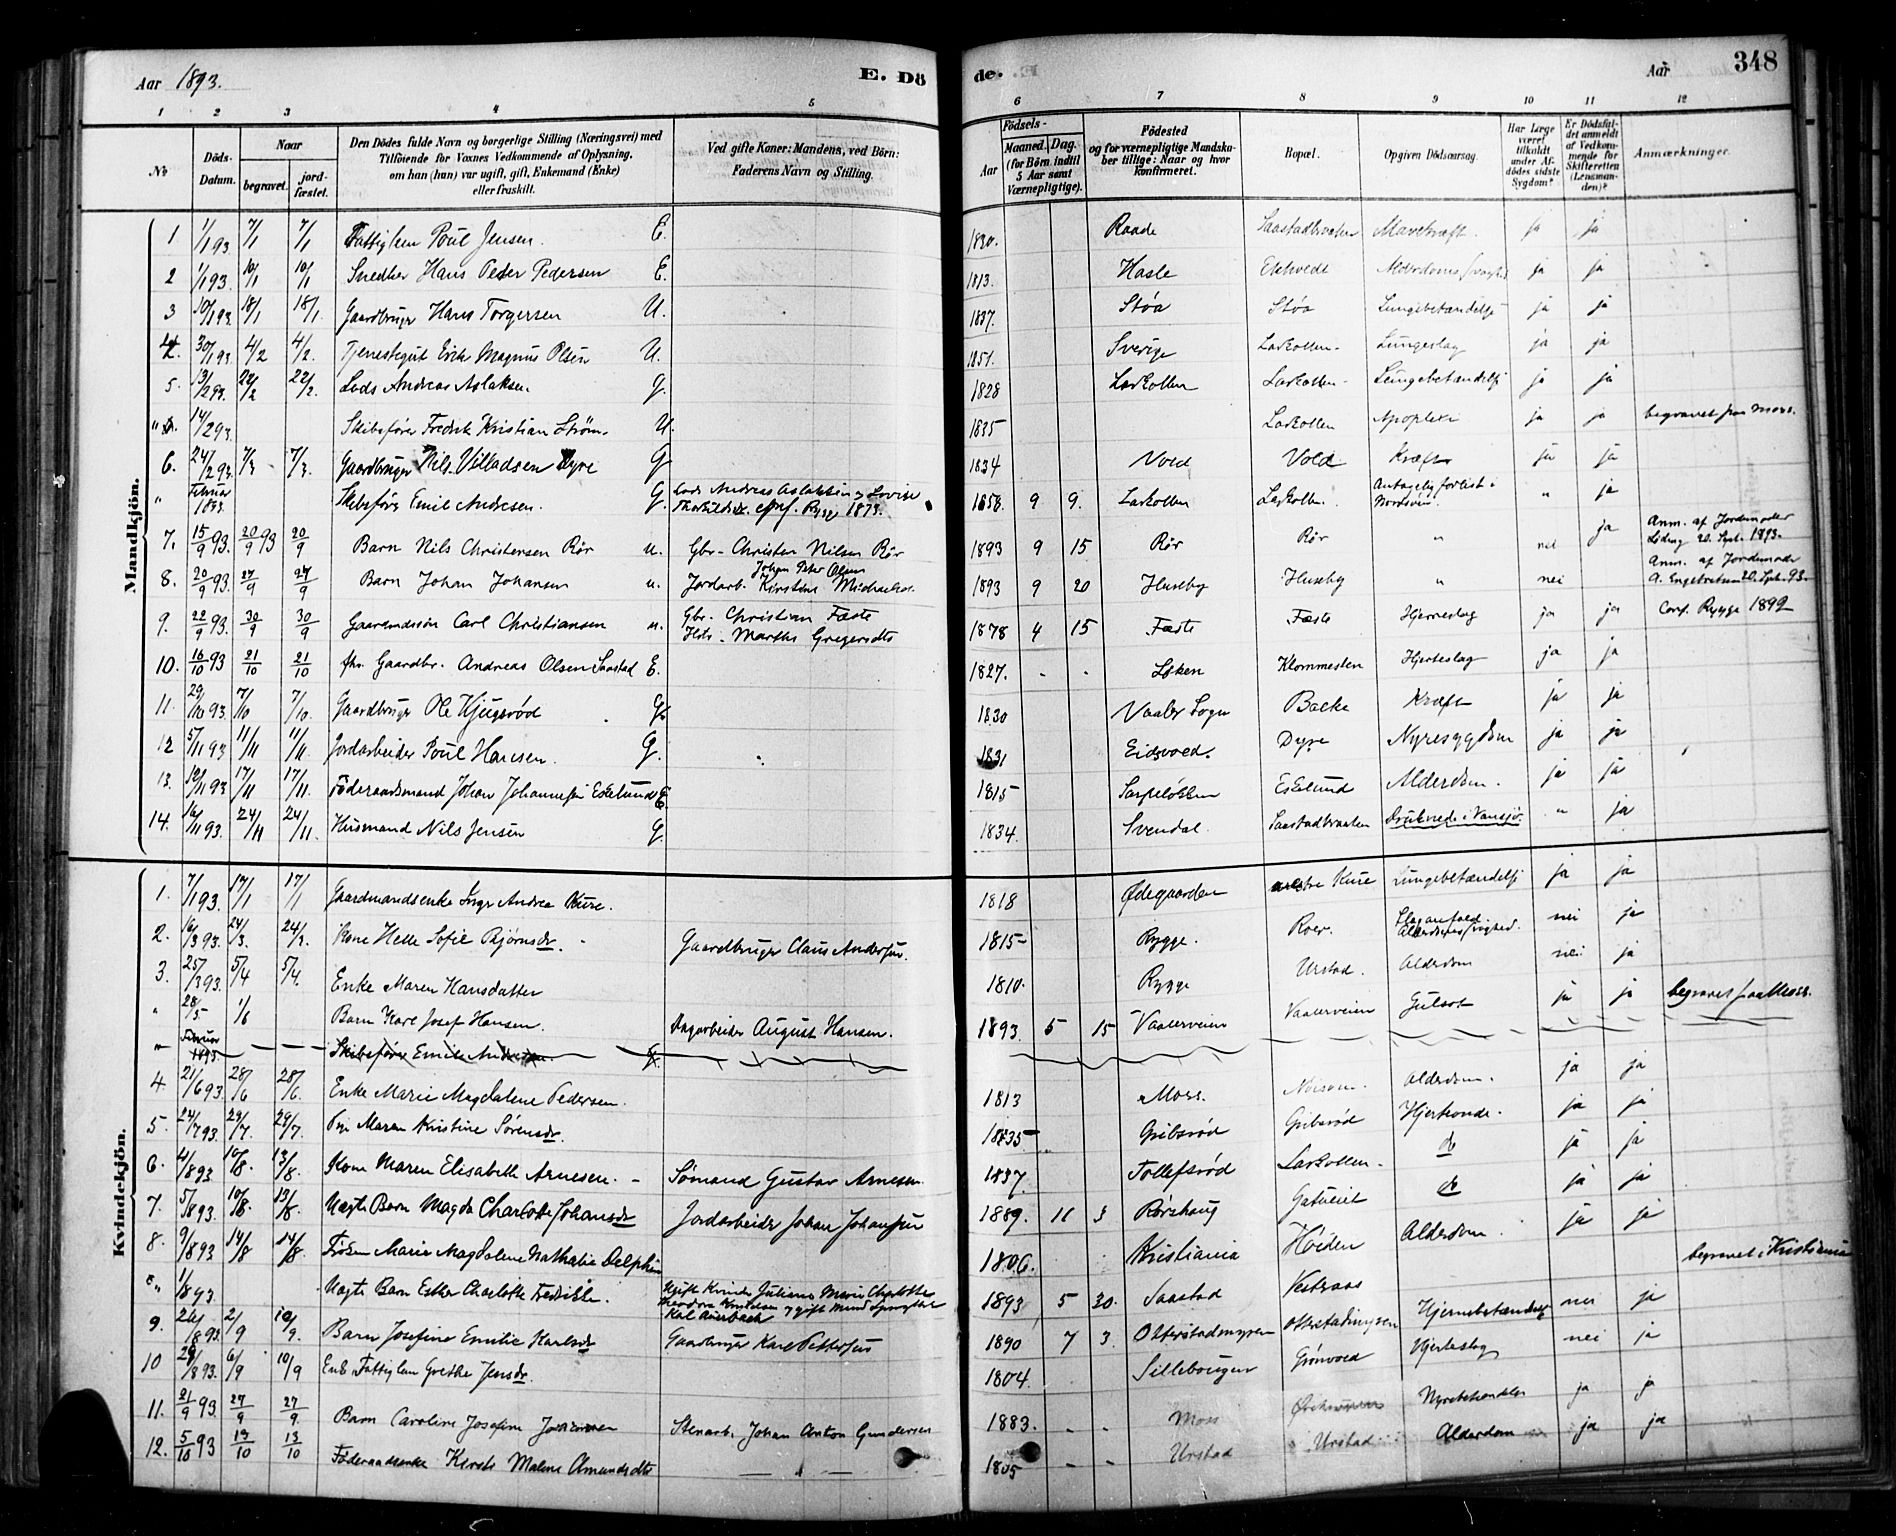 Aar 1893.
E. Dö
de.
Aar
348
1 2 3 4 5 6 7 8 9 10 11 12
No
Döds-Datum.
Naar
begravet.
jord-fæstet.
Den Dödes fulde Navn og borgerlige Stilling (Næringsvei) med Tilföiende for Voxnes Vedkommende af Oplysning, om han (hun) var ugift, gift, Enkemand (Enke) eller fraskilt.
Ved gifte Koner: Mandens, ved Börn: Faderens Navn og Stilling.
Födsels-
Aar
Maaned. Dag.
(for Börn indtil 5 Aar samt Værnepligtige).
Födested og for værnepligtige Mandskaber tillige: Naar og hvor konfirmeret.
Bopæl.
Opgiven Dödsaarsag.
Har Læge været tilkaldt under Afdödes sidste Sygdom?
Er Dödsfaldet anmeldt af Vedkommende for Skifteretten (Lensmanden)?
Anmærkninger.
Mandkjön.
1 1/1 93. 7/1 7/1 Fattiglem Poul Jensen. E. 1830. Raade Saastadbraaten Mavekræft. ja ja
2 1/1 93. 10/1 10/1 Snedker Hans Peder Pedersen E. 1813. Hasle Ekhvedt ja ja
3 10/1 93. 18/1 18/1. Gaardbruger Hans Torgersen U. 1837. Støa Støa Lungebetændelse ja ja
4. 30/1 93. 4/2 4/2. Tjenestegut Erik Magnus Olsen U. 1851. Sverige Larkollen. Lungeslag ja ja
5. 13/2 93. 22/2 22/2. Lods Andreas Aslaksen. G. 1828 Larkollen Larkollen. Lungebetændelse ja ja
" 14/2 93. Skibsfører Fredrik Kristian Strøm. U. 1835 Larkollen Apoplexi ja ja begravet paa Moss.
6. 24/2 93. 7/3 7/3. Gaardbruger Nils Villadsen Dyre G 1834 Vold Vold Kræft ja ja
" Februar 1893. Skibsfører Emil Andresen. G. Lods Andreas Aslaksen og Lovise conf. Rygge 1873. 1858 9 9. Larkollen Larkollen. Antagelig forlist i Nordsøen " ja
7. 15/9 93. 20/9 93 20/9 Barn Nils Christensen Rör u. Gbr. Christen Nilsen Rör 1893 9 15 Rör Rör " nei ja Anm. af Jordemoder 20. Sept. 1893.
8. 20/9 93. 27/9 27/9 Barn Johan Johansen u. Jordarb. Johan Peter Olsen Kirstine 1893 9 20 Huseby Huseby " nei Anm. af Jordemoder A. Engebretsen 20. Sept. 93.
9. 22/9 93. 30/9 30/9 Gaardmandssøn Carl Christiansen u. Gbr. Christian Fæste Marthe Gregersdtr 1878 4 15 Fæste Fæste Hjerneslag ja ja Conf. Rygge 1892
10. 16/10 93 21/10 21/10 fhv. Gaardbr. Andreas Olsen Saastad E. 1827. Løken Klommesten Hjerteslag ja ja
11. 29/10 93. 7/10 7/10. Gaardbruger Ole Kjugsrød G. 1830 Vaaler Sogn Bakke Kræft ja ja
12 5/11 93 11/11 11/11. Jordarbeider Poul Hansen. G. 1831 Eidsvold. Dyre Nyresygdom ja ja
13. 12/11 93 17/11 17/11. Föderaadsmand Johan Johannesen Eskelund E 1815 Eskelund Alderdom. ja ja
14. 16/11 93. 24/11 24/11. Husmand Nils Jensen G. 1834. Svendal. Saastadbraaten Druknede i Vansjø. " ja
Kvindekjön.
1. 7/1 93. 17/1 17/1 Gaardmandsenke Inger Andrea Kure. 1818 Ødegaarden vestre Kure Lungebetændelse ja ja
2. 16/3 93. 24/3. 24/3. Kone Helle Sofie Bjørnsdr. Gaardbruger Claus Andersen. 1815 Rygge. Roer. Slaganfald. Alderdomssvaghed. nei ja
3. 25/3 93. 5/4 5/4. Enke Maren Hansdatter 1810. Rygge Urstad. Alderdom nei ja
" 28/5 1/6 Barn Karl Josef Hansen. Dagarbeider August Hansen. 1893 5 15 Vaalerveien Vaalerveien Gulsot ja ja begravet paa Moss.
" Februar 1893 Skibsfører Emil Andresen. G.
4. 21/6 93. 28/6 28/6. Enke Marie Magdalene Pedersen. 1813 Moss. Alderdom. ja ja
5. 24/7 93. 29/7. 29/7. Pige Maren Kristine Sørensdr. 1835 Gribsrød Gribsrød Hjerteonde. ja ja
6. 4/8 93. 10/8. 13/8. Kone Maren Elisabeth Arnesen. Sømand Gustav Arnesen. 1837. Tollefsrød Larkollen. do ja ja
7. 5/8 93. 10/8. 13/8. Uægte Barn Magda Charlotte Johansdr Jordarbeider Johan Johansen 1889. 11 3 Rørshaug do ja ja
8. 9/8 93 14/8 14/8. Frøken Marie Magdalene Nathalie Delphin 1806. Kristiania Høiden Alderdom. ja ja begravet i Kristiania
" 1/8 93. Uægte Barn Esther Charlotte Ugift Kvinde Juliane Marie Charlotte Theodora Knudsen og gift Mand Karl Auerbach 1893 5 30. Saastad
9. 26/8 93. 2/9 10/9. Barn Josefine Emilie Karlsdr Gaardbruger Karl Pettersen 1890 7 3. Ottersladmyren Hjernebetændelse nei ja
10 29/8 93. 6/9 10/9 Enke Fattiglem Grethe Jensdr. 1804. Sillebougen Grønvold Hjerteslag nei ja
11. 21/9 93. 27/9 27/9. Barn Caroline Josefine Stenarb. Johan Anton Gundersen 1883. Moss ja ja
12. 5/10 93 13/10 13/10 Föderaadsenke Kirsti Malene Amundsdtr 1805 Urstad Urstad Alderdom ja ja